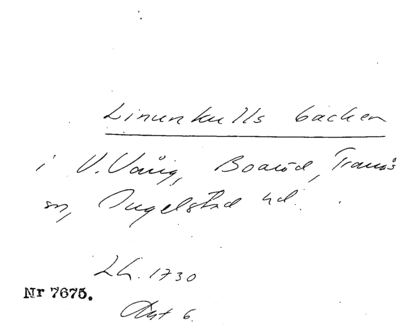 Linunkulls backen
i V. Vång, Boaröd, Tranås
sn, Ingelstad hd.
LG. 1730
Akt 6.
Nr 7675.